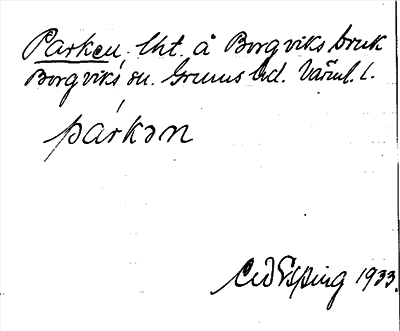 Parken, lht. å Borgviks bruk
Borgviks sn. Grums hd. Värml. l.
párkən
1933.